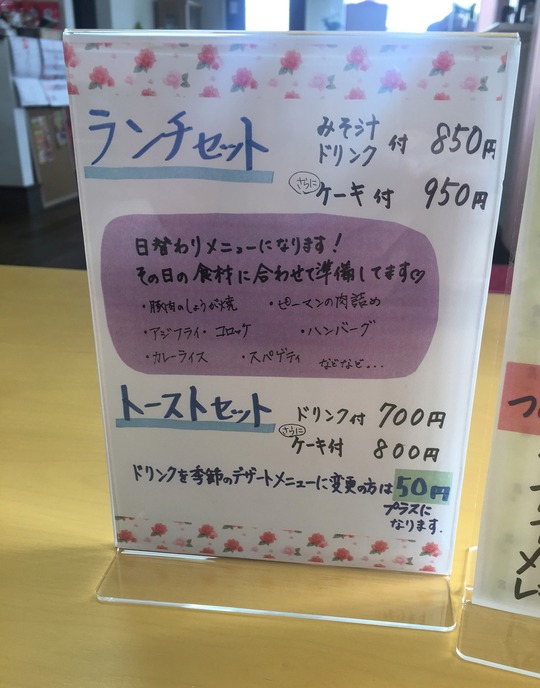 ランチセット
みそ汁
ドリンク 付 850円
さらに ケーキ付 950円
日替わりメニューになります！
その日の食材に合わせて準備してます♡
・豚肉のしょうが焼 ・ピーマンの肉詰め
・アジフライ・コロッケ ・ハンバーグ
・カレーライス ・スパゲティ などなど...
トーストセット
ドリンク付 700円
さらに ケーキ付 800円
ドリンクを季節のデザートメニューに変更の方は50円
プラスに
なります.